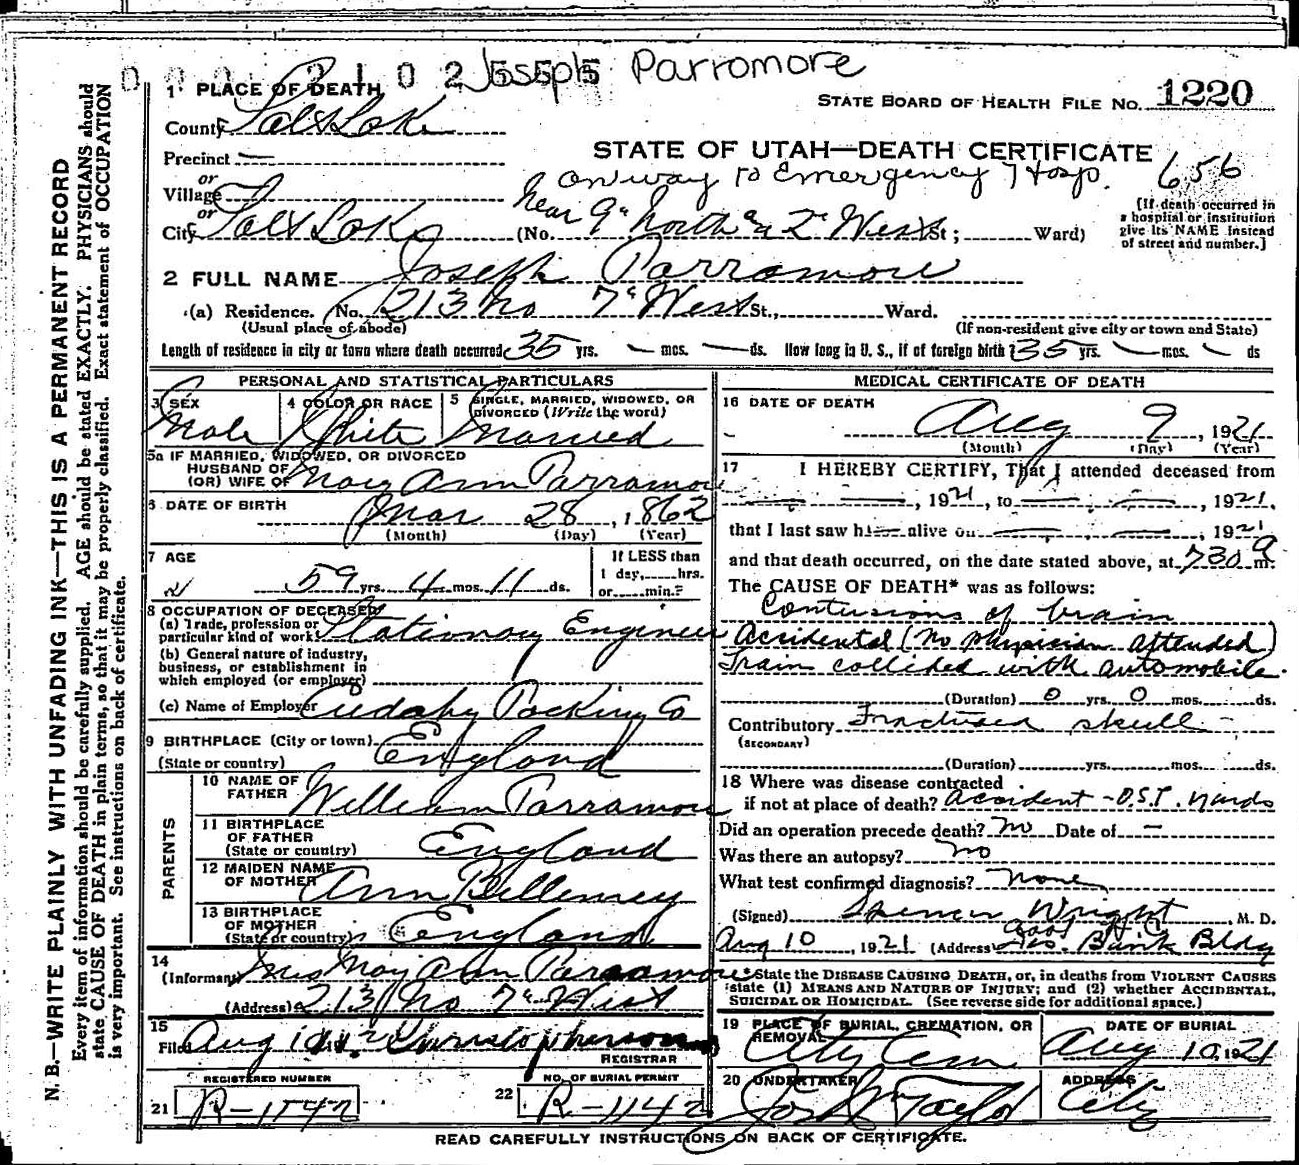 Joseph Parromore
1 PLACE OF DEATH
STATE BOARD OF HEALTH FILE NO. 1220
County Salt Lake
STATE OF UTAH—DEATH CERTIFICATE
656
Precinct —
on way to Emergency Hosp.
or
Village
or
City Salt Lake
(No. Near 9" North & 2" West St; Ward)
(If death occurred in
a hospital or institution
give its NAME instead
of street and number.]
2 FULL NAME Joseph Parramore
(a) Residence. No. 213 No 7" West St., Ward.
(Usual place of abode)
(If non-resident give city or town and State)
Length of residence in city or town where death occurred 35 yrs. — mos. — ds. How long in U. S., if of foreign birth 35 yrs. — mos. — ds
PERSONAL AND STATISTICAL PARTICULARS
3 SEX
Male
4 COLOR OR RACE
White
5 SINGLE, MARRIED, WIDOWED, OR
DIVORCED (Write the word)
Married
5a IF MARRIED, WIDOWED, OR DIVORCED
HUSBAND OF
(OR) WIFE OF Mary Ann Parramore
6 DATE OF BIRTH
Mar 28, 1862
(Month) (Day) (Year)
7 AGE
59 yrs. 4 mos. 11 ds.
If LESS than
1 day, hrs.
or min.?
8 OCCUPATION OF DECEASED
(a) Trade, profession or
particular kind of work Stationary Engineer
(b) General nature of industry,
business, or establishment in
which employed (or employer)
(c) Name of Employer Cudahy Packing Co
9 BIRTHPLACE (City or town)
(State or country) England
PARENTS
10 NAME OF
FATHER William Parramore
11 BIRTHPLACE
OF FATHER
(State or country) England
12 MAIDEN NAME
OF MOTHER Ann
13 BIRTHPLACE
OF MOTHER
(State or country) England
14
(Informant) Mrs Mary Ann Parramore
(Address) 213 No 7" West
15
Filed Aug 10
REGISTRAR
REGISTERED NUMBER
21
NO. OF BURIAL PERMIT
22 R-1142
MEDICAL CERTIFICATE OF DEATH
16 DATE OF DEATH
Aug 9, 1921
(Month) (Day) (Year)
17 I HEREBY CERTIFY, That I attended deceased from
— —, 1921, to — —, 1921,
that I last saw h— alive on — —, 1921
and that death occurred, on the date stated above, at 730 a m.
The CAUSE OF DEATH* was as follows:
Contusions of brain
Accidental (No physician attended)
Train collided with automobile.
(Duration) 0 yrs. 0 mos. ds.
Contributory Fractured skull
(SECONDARY)
(Duration) yrs. mos. ds.
18 Where was disease contracted
if not at place of death? Accident - O.S.L. yards
Did an operation precede death? no Date of —
Was there an autopsy? no
What test confirmed diagnosis? none
(Signed) Spencer Wright, M. D.
Aug 10, 1921 (Address) Des. Bank Bldg
*State the DISEASE CAUSING DEATH, or, in deaths from VIOLENT CAUSES
state (1) MEANS AND NATURE OF INJURY; and (2) whether ACCIDENTAL,
SUICIDAL OR HOMICIDAL. (See reverse side for additional space.)
19 PLACE OF BURIAL, CREMATION, OR
REMOVAL
City Cem
DATE OF BURIAL
Aug 10, 1921
20 UNDERTAKER
Jos Wm Taylor
ADDRESS
City
READ CAREFULLY INSTRUCTIONS ON BACK OF CERTIFICATE.
N. B.—WRITE PLAINLY WITH UNFADING INK—THIS IS A PERMANENT RECORD
Every item of information should be carefully supplied. AGE should be stated EXACTLY. PHYSICIANS should
state CAUSE OF DEATH in plain terms, so that it may be properly classified. Exact statement of OCCUPATION
is very important. See instructions on back of certificate.